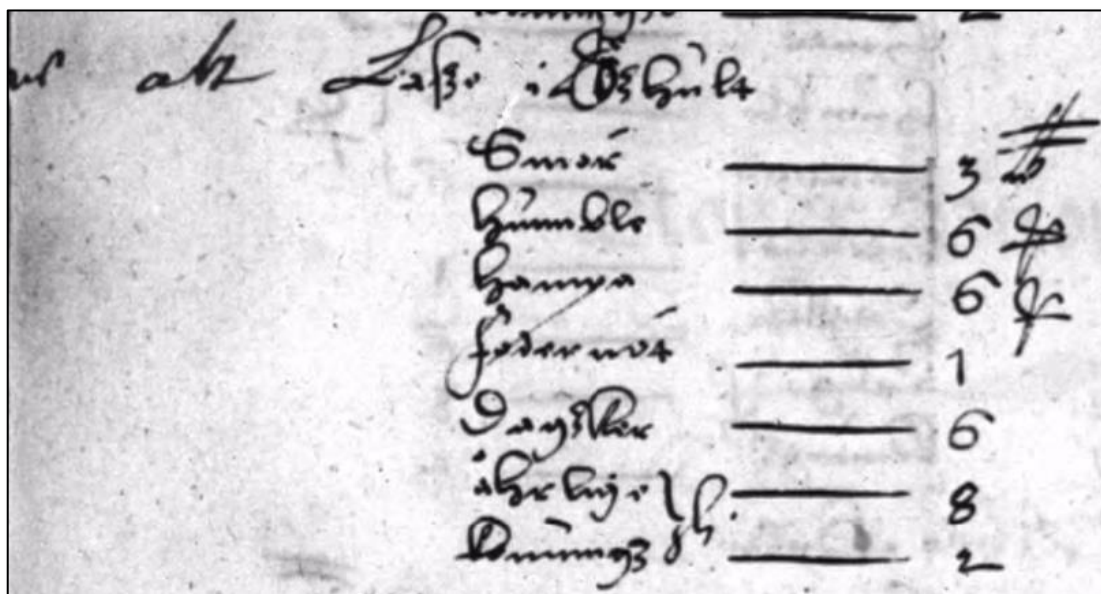 Laße i Öshult
Smör 3 ℔
humble 6
hampa 6
foder nöt 1
Dagzler 6
åhrlige 8
konungz 2